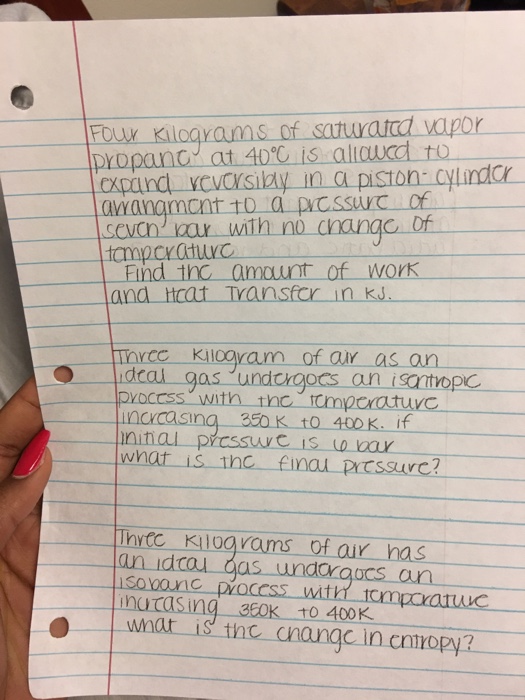 Four Kilograms of saturated vapor
propane at 40°C is allowed to
expand reversibly in a piston-cylinder
arrangment to a pressure of
seven bar with no change of
temperature
Find the amount of work
and Heat Transfer in KJ.
Three Kilogram of air as an
ideal gas undergoes an isentropic
process with the temperature
increasing 350K to 400K. if
initial pressure is 6 bar
what is the final pressure?
Three Kilograms of air has
an ideal gas undergoes an
isobaric process with temperature
increasing 350K to 400K
what is the change in entropy?